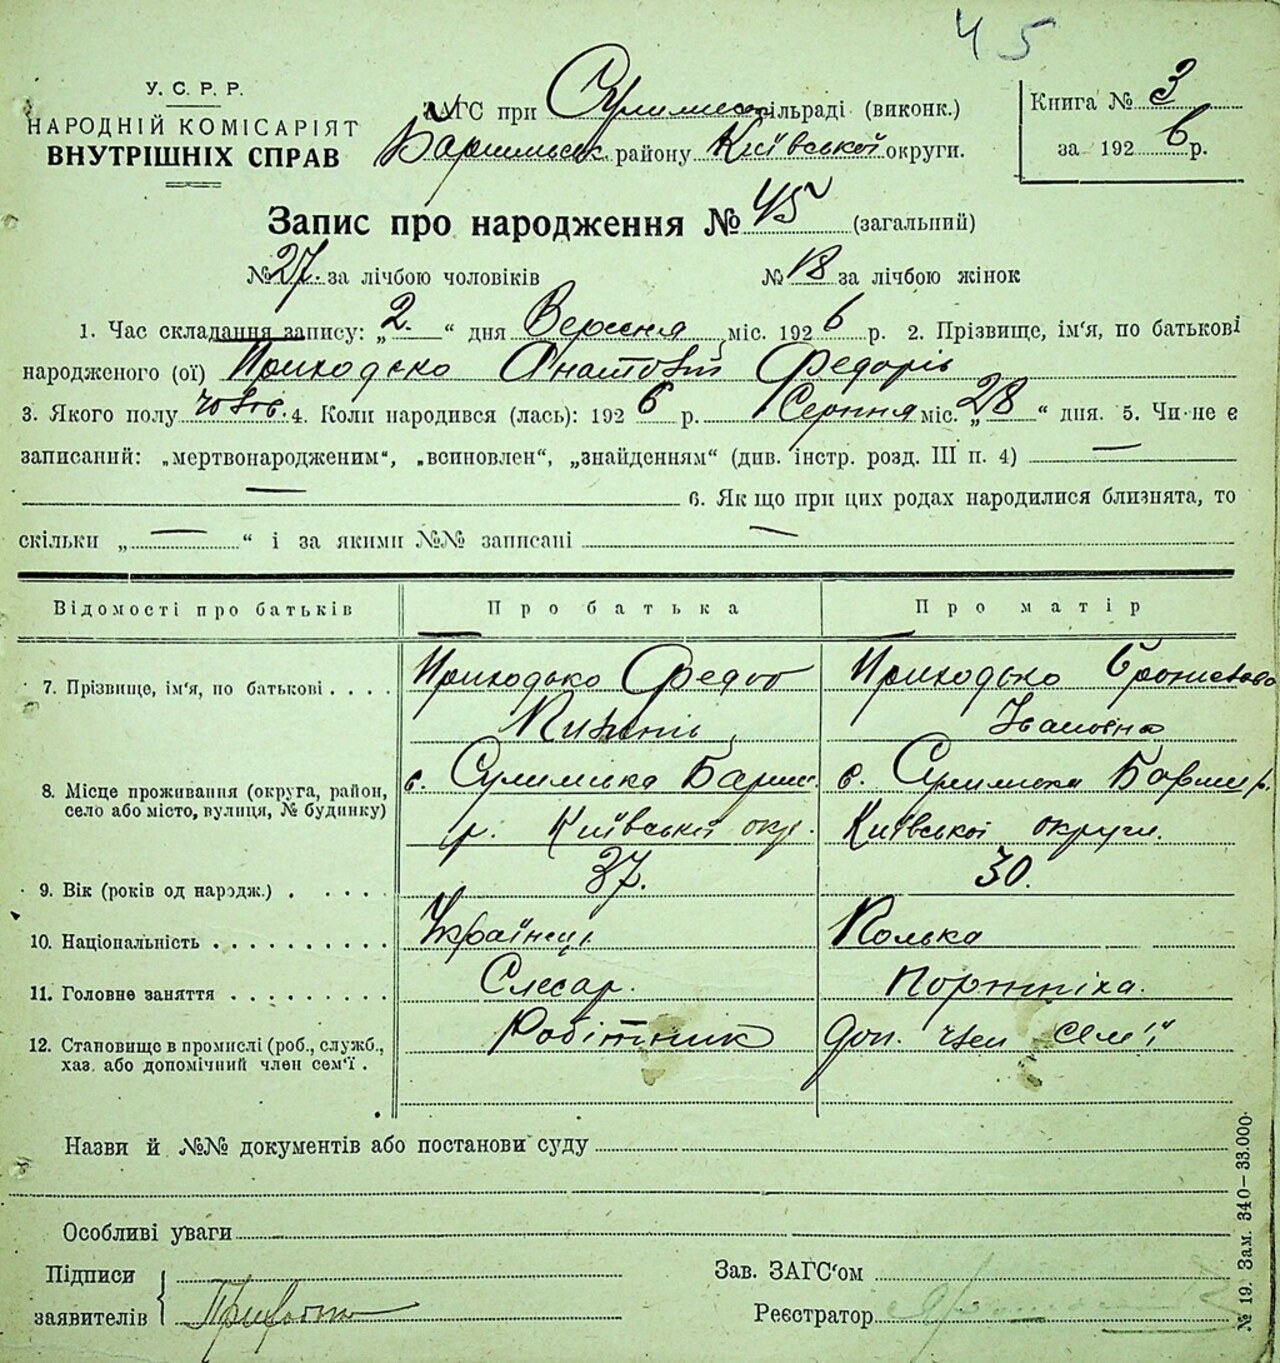 45
У. С. Р. Р.
НАРОДНІЙ КОМІСАРІЯТ
ВНУТРІШНІХ СПРАВ
ЗАГС при сільраді (виконк.)
району Київської округи.
Книга № 3
за 1926 р.
Запис про народження № 45 (загальний)
№ 27. за лічбою чоловіків № 18 за лічбою жінок
1. Час складання запису: „2.“ дня Вересня міс. 1926 р. 2. Прізвище, ім'я, по батькові
народженого (ої) Приходько Федорів
3. Якого полу 4. Коли народився (лась): 1926 р. Серпня міс. „28“ дня. 5. Чи не є
записаний: „мертвонародженим“, „всиновлен“, „знайденням“ (див. інстр. розд. III п. 4) —
— 6. Якщо при цих родах народилися близнята, то
скільки „—“ і за якими №№ записані —
Відомості про батьків Про батька Про матір
7. Прізвище, ім'я, по батькові . . . . Приходько Федот Приходько
Івановна
8. Місце проживання (округа, район, село або місто, вулиця, № будинку) с. Сулимівка Бариш. с. Сулимівка
р. Київської окр. Київської округи.
9. Вік (років од народж.) . . . . . 37. 30.
10. Національність . . . . . . . . . . Українец. Полька
11. Головне заняття . . . . . . . . . Слесар.
12. Становище в промислі (роб., служб., хаз. або допомічний член сем'ї . Робітник Доп. член сем'ї
Назви й №№ документів або постанови суду
Особливі уваги
Підписи заявителів Приходько
Зав. ЗАГС'ом
Реєстратор
№ 19. Зам. 340—33.000.